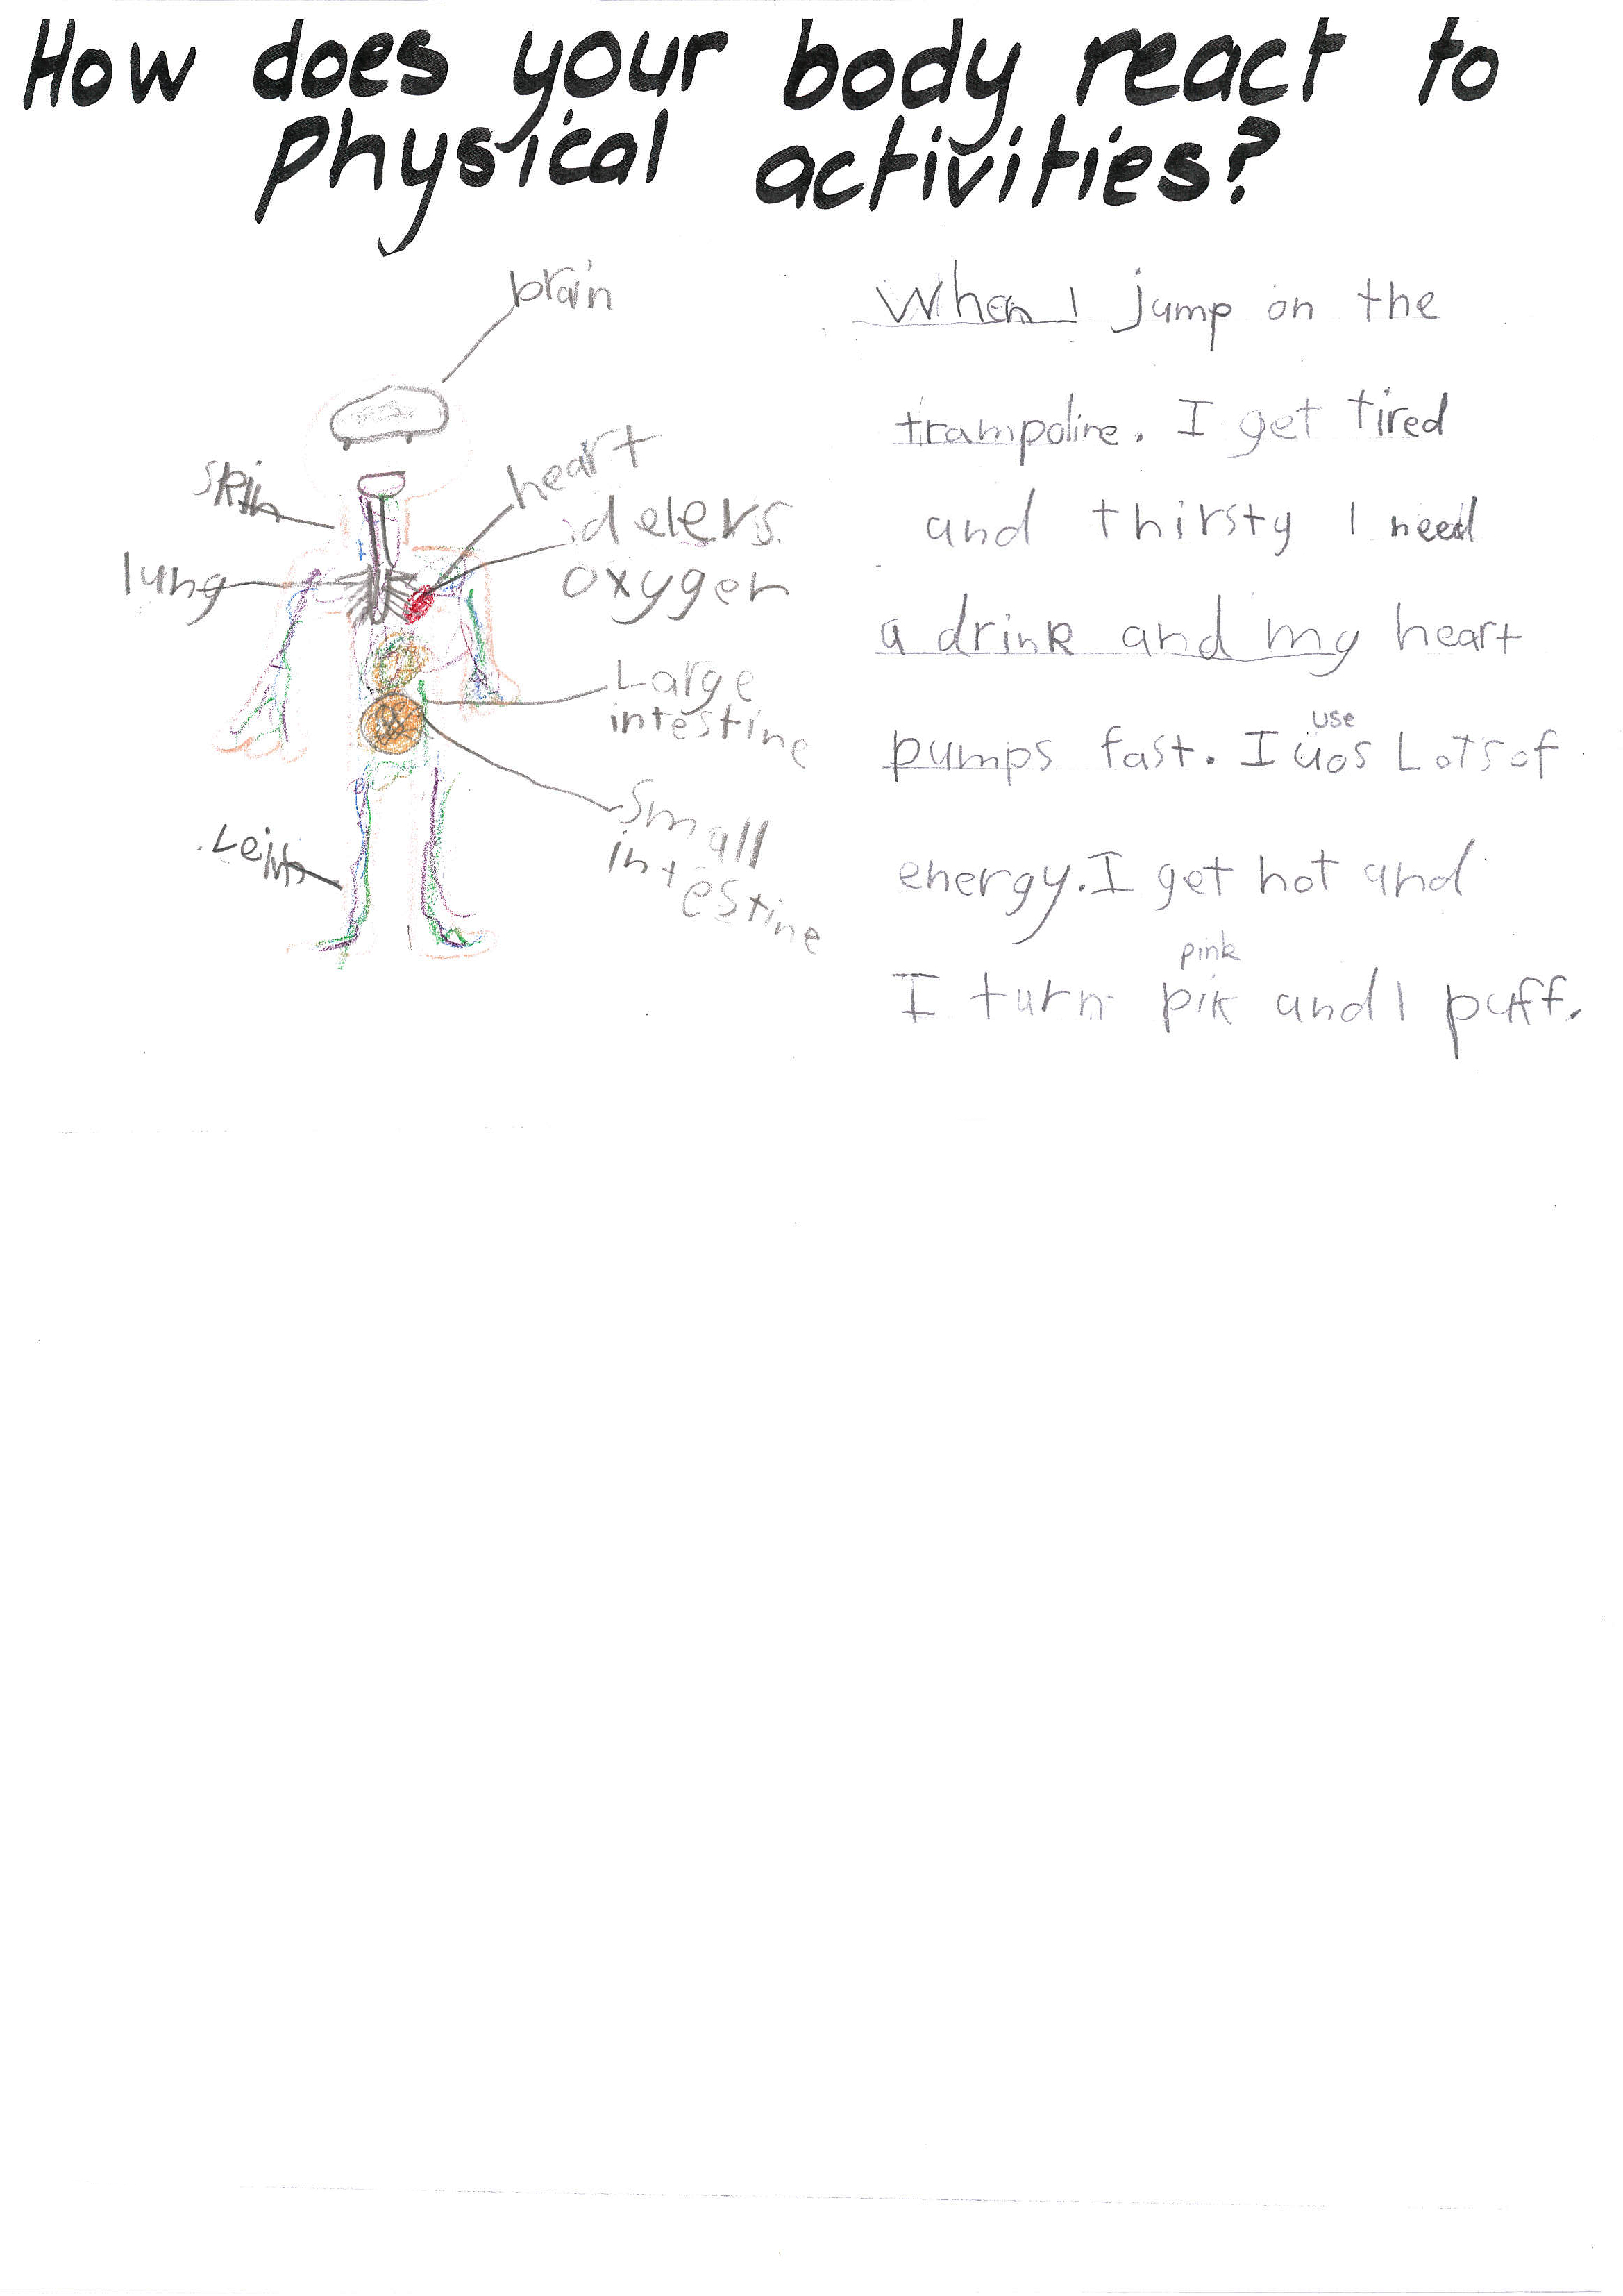 How does your body react to
physical activities?
brain
skin
heart
delers
oxygen
lung
Large
intestine
Small
intestine
When I jump on the
trampoline. I get tired
and thirsty I need
a drink and my heart
pumps fast. I uos Lots of
use
energy. I get hot and
pink
I turn pik and I puff.